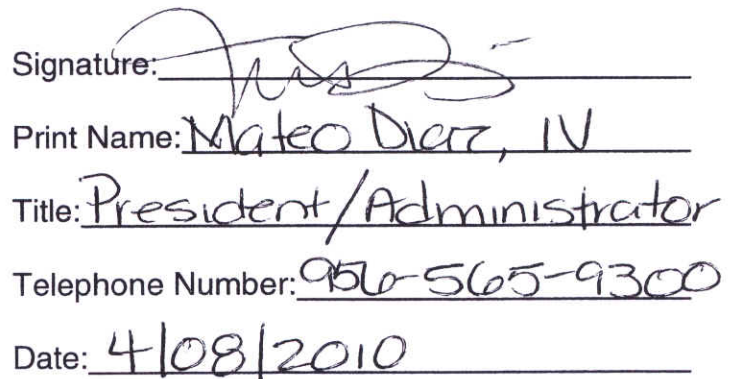 Signature:
Print Name: Mateo Diaz, IV
Title: President/Administrator
Telephone Number: 956-565-9300
Date: 4/08/2010